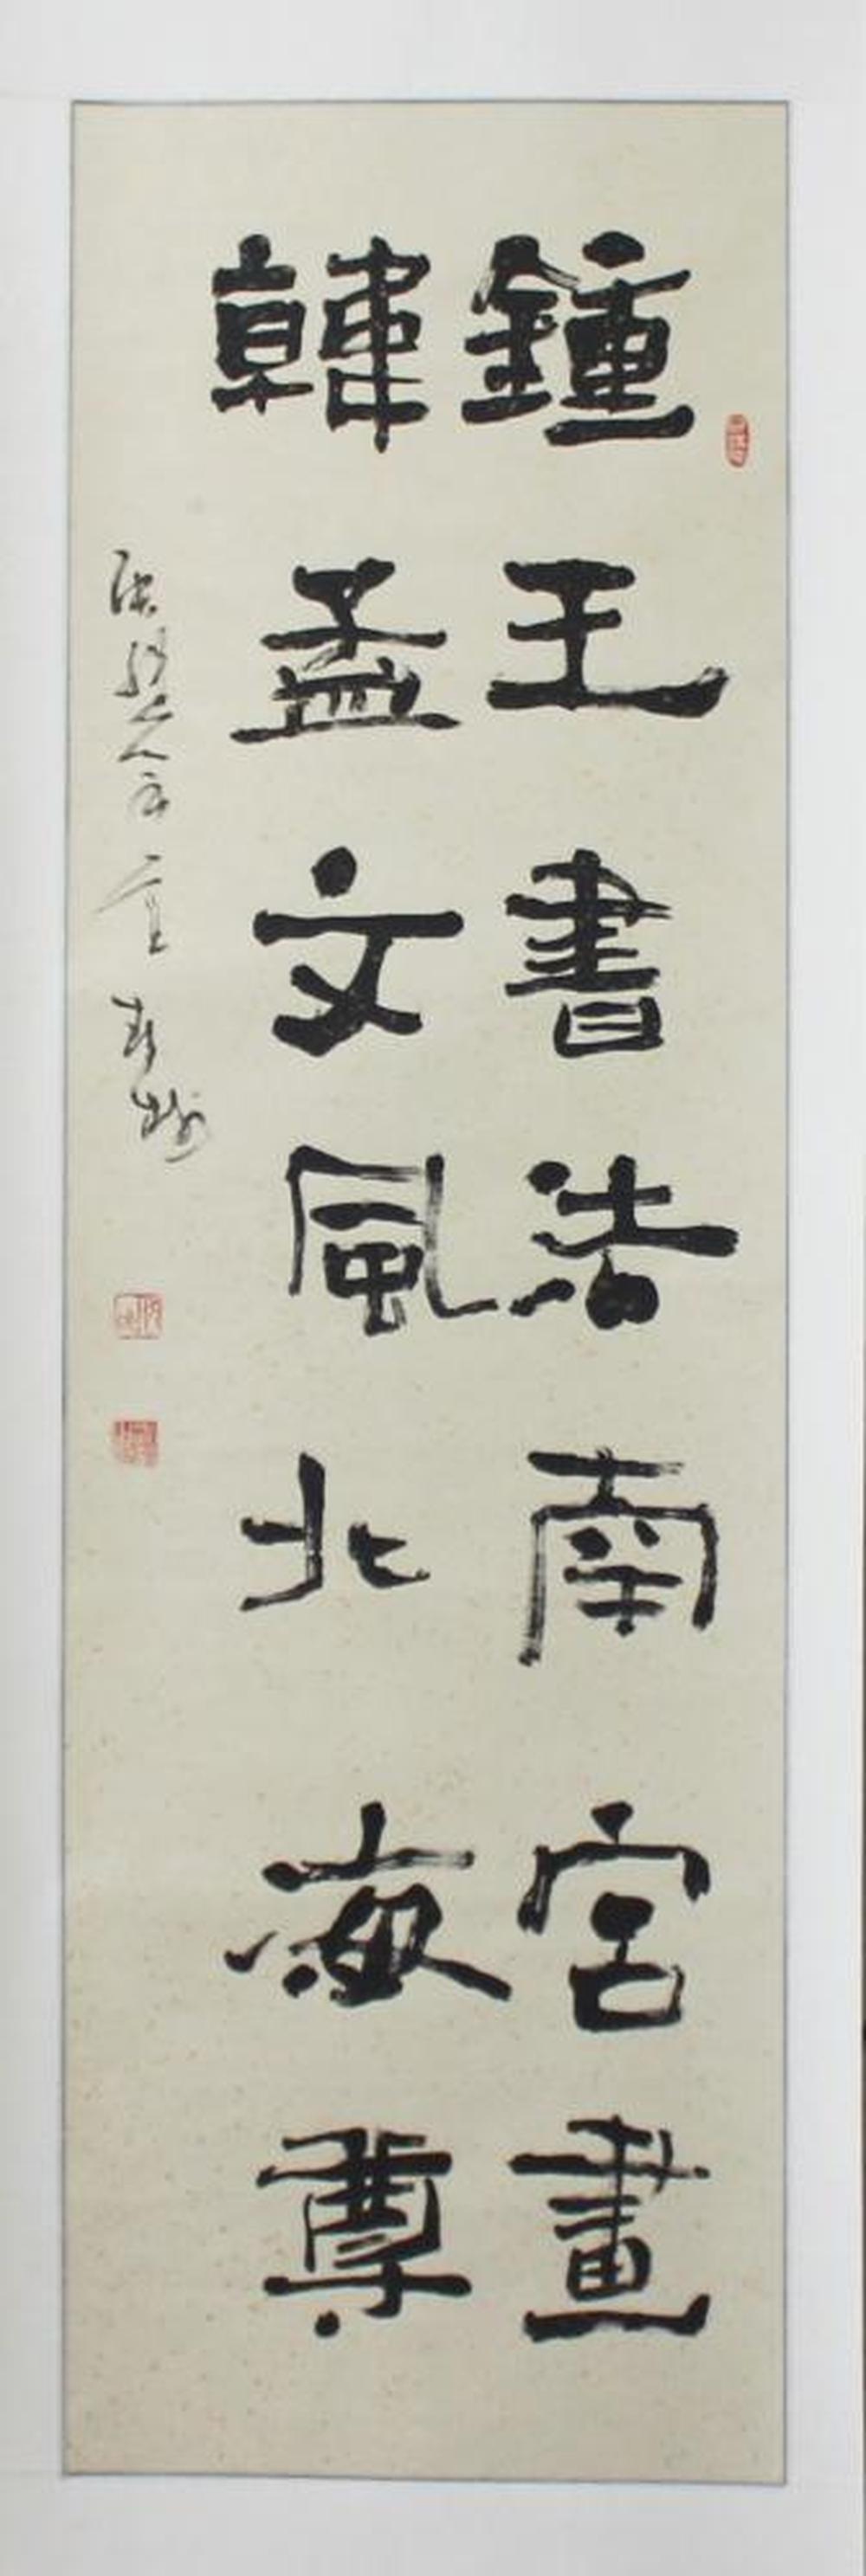 鍾王書法南宮畫
韓孟文風北海尊